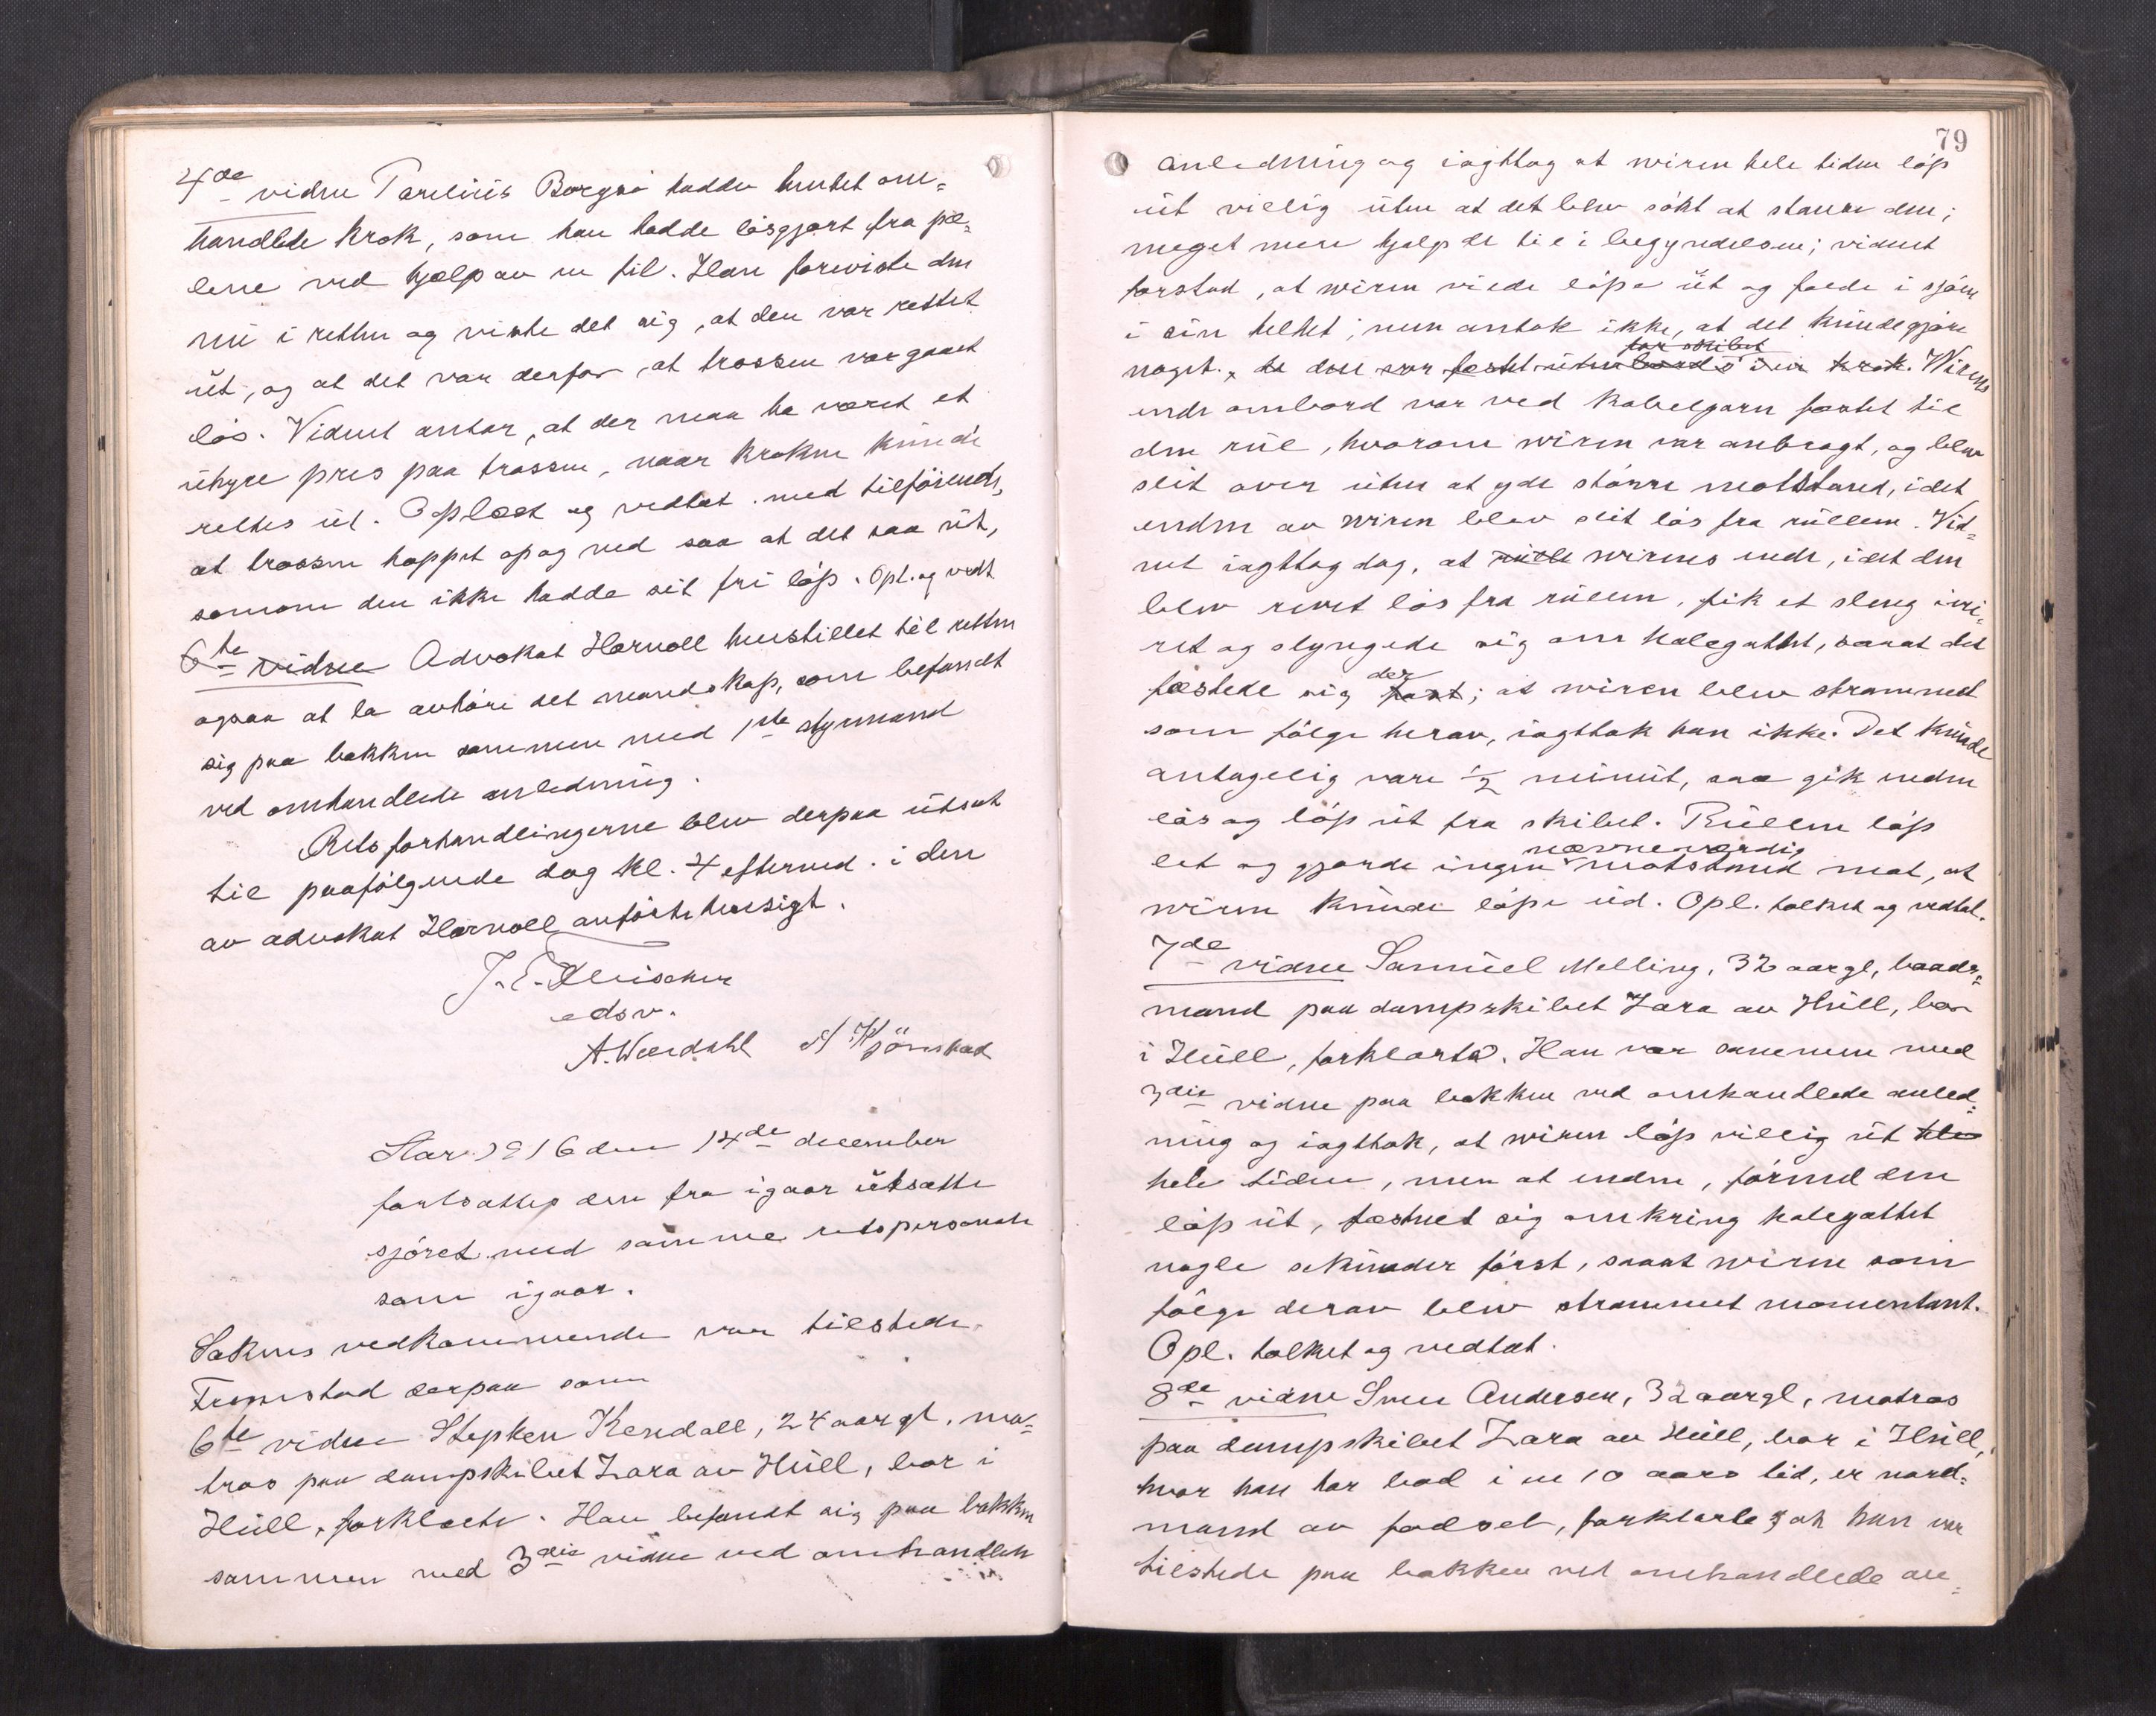 4de vidne Parelius Borgsö hadde hentet om-
handlede krok, som han hadde løsgjort fra pæ-
lene ved hjælp av en fil. Han foreviste den
nu i retten og viste det sig, at den var rettet
ut, og at det var derfor, at trossen var gaaet
løs. Vidnet antar, at der maa ha været et
uhyre pres paa trossen, naar kroken kunde
rettes ut. Oplæst og vedtat med tilföiende,
at trossen hoppet op og ned saa at det saa ut,
somom den ikke hadde sit fri löp. Opl. og vedt
6te vidne Advokat Hornoll henstillet til retten
ogsaa at la avhöre det mandskap, som befandt
sig paa bakken sammen med 1ste styrmand
ved omhandlede anledning.
Retsforhandlingerne blev derpaa utsat
til paafölgende dag kl. 4 eftermd. i den
av advokat Hornoll anförte hensigt.
J. E. Fleischer
edsv.
A. Weerdahl N Kjömstad
Aar 1916 den 14de december
fortsattes den fra igaar utsatte
sjöret med samme retspersonale
som igaar.
Sakens vedkommende var tilstede.
Fremstod derpaa som
6te vidne Stephen Kendall, 24 aar gl, ma-
tros paa dampskibet Zara av Hull, bor i
Hull, forklarte. Han befandt sig paa bakken
sammen med 3die vidne ved omhandlede
79
anledning og iagttog at wiren hele tiden löp
ut villig uten at det blev sökt at stanse den;
meget mere hjalp de til i begyndelsen; vidnet
forstod, at wiren vilde löpe ut og falde i sjöen
i sin helhet; men antok ikke, at det kunde gjöre
noget. da den var festet utenbords i en krok. Wirens
for skibet
ende ombord var ved kabelgarn festet til
den rul, hvorom wiren var anbragt, og blev
slit over uten at yde större motstand, idet
enden av wiren blev slit lös fra rullen. Vid-
net iagttog dog, at rulle wirens ende, idet den
blev revet lös fra rullen, fik et sleng i vei-
ret og slyngede sig om halegattet, saaat det
fæstede sig fast; at wiren blev strammet
der
som fölge herav, iagttok han ikke. Det kunde
antagelig vare ½ minut, saa gik enden
lös og löp ut fra skibet. Rullen löp
let og gjorde ingen motstand mot, at
nævneværdig
wiren kunde löpe ud. Opl. tolket og vedtat.
7de vidne Samuel Melling, 32 aar gl, baads-
mand paa dampskibet Zara av Hull, bor
i Hull, forklarte. Han var sammen med
3die vidne paa bakken ved omhandlede anled-
ning og iagttok, at wiren löp villig ut hle
hele tiden, men at enden, förend den
löp ut, fæstnet sig omkring halegattet
nogle sekunder först, saaat wiren som
fölge derav blev strammet momentant.
Opl. tolket og vedtat.
8de vidne Sven Andersen, 32 aar gl, matros
paa dampskibet Zara av Hull, bor i Hull,
hvor han har bod i en 10 aars tid, er nord-
mand av fødsel, forklarte at han var
tilstede paa bakken ved omhandlede an-